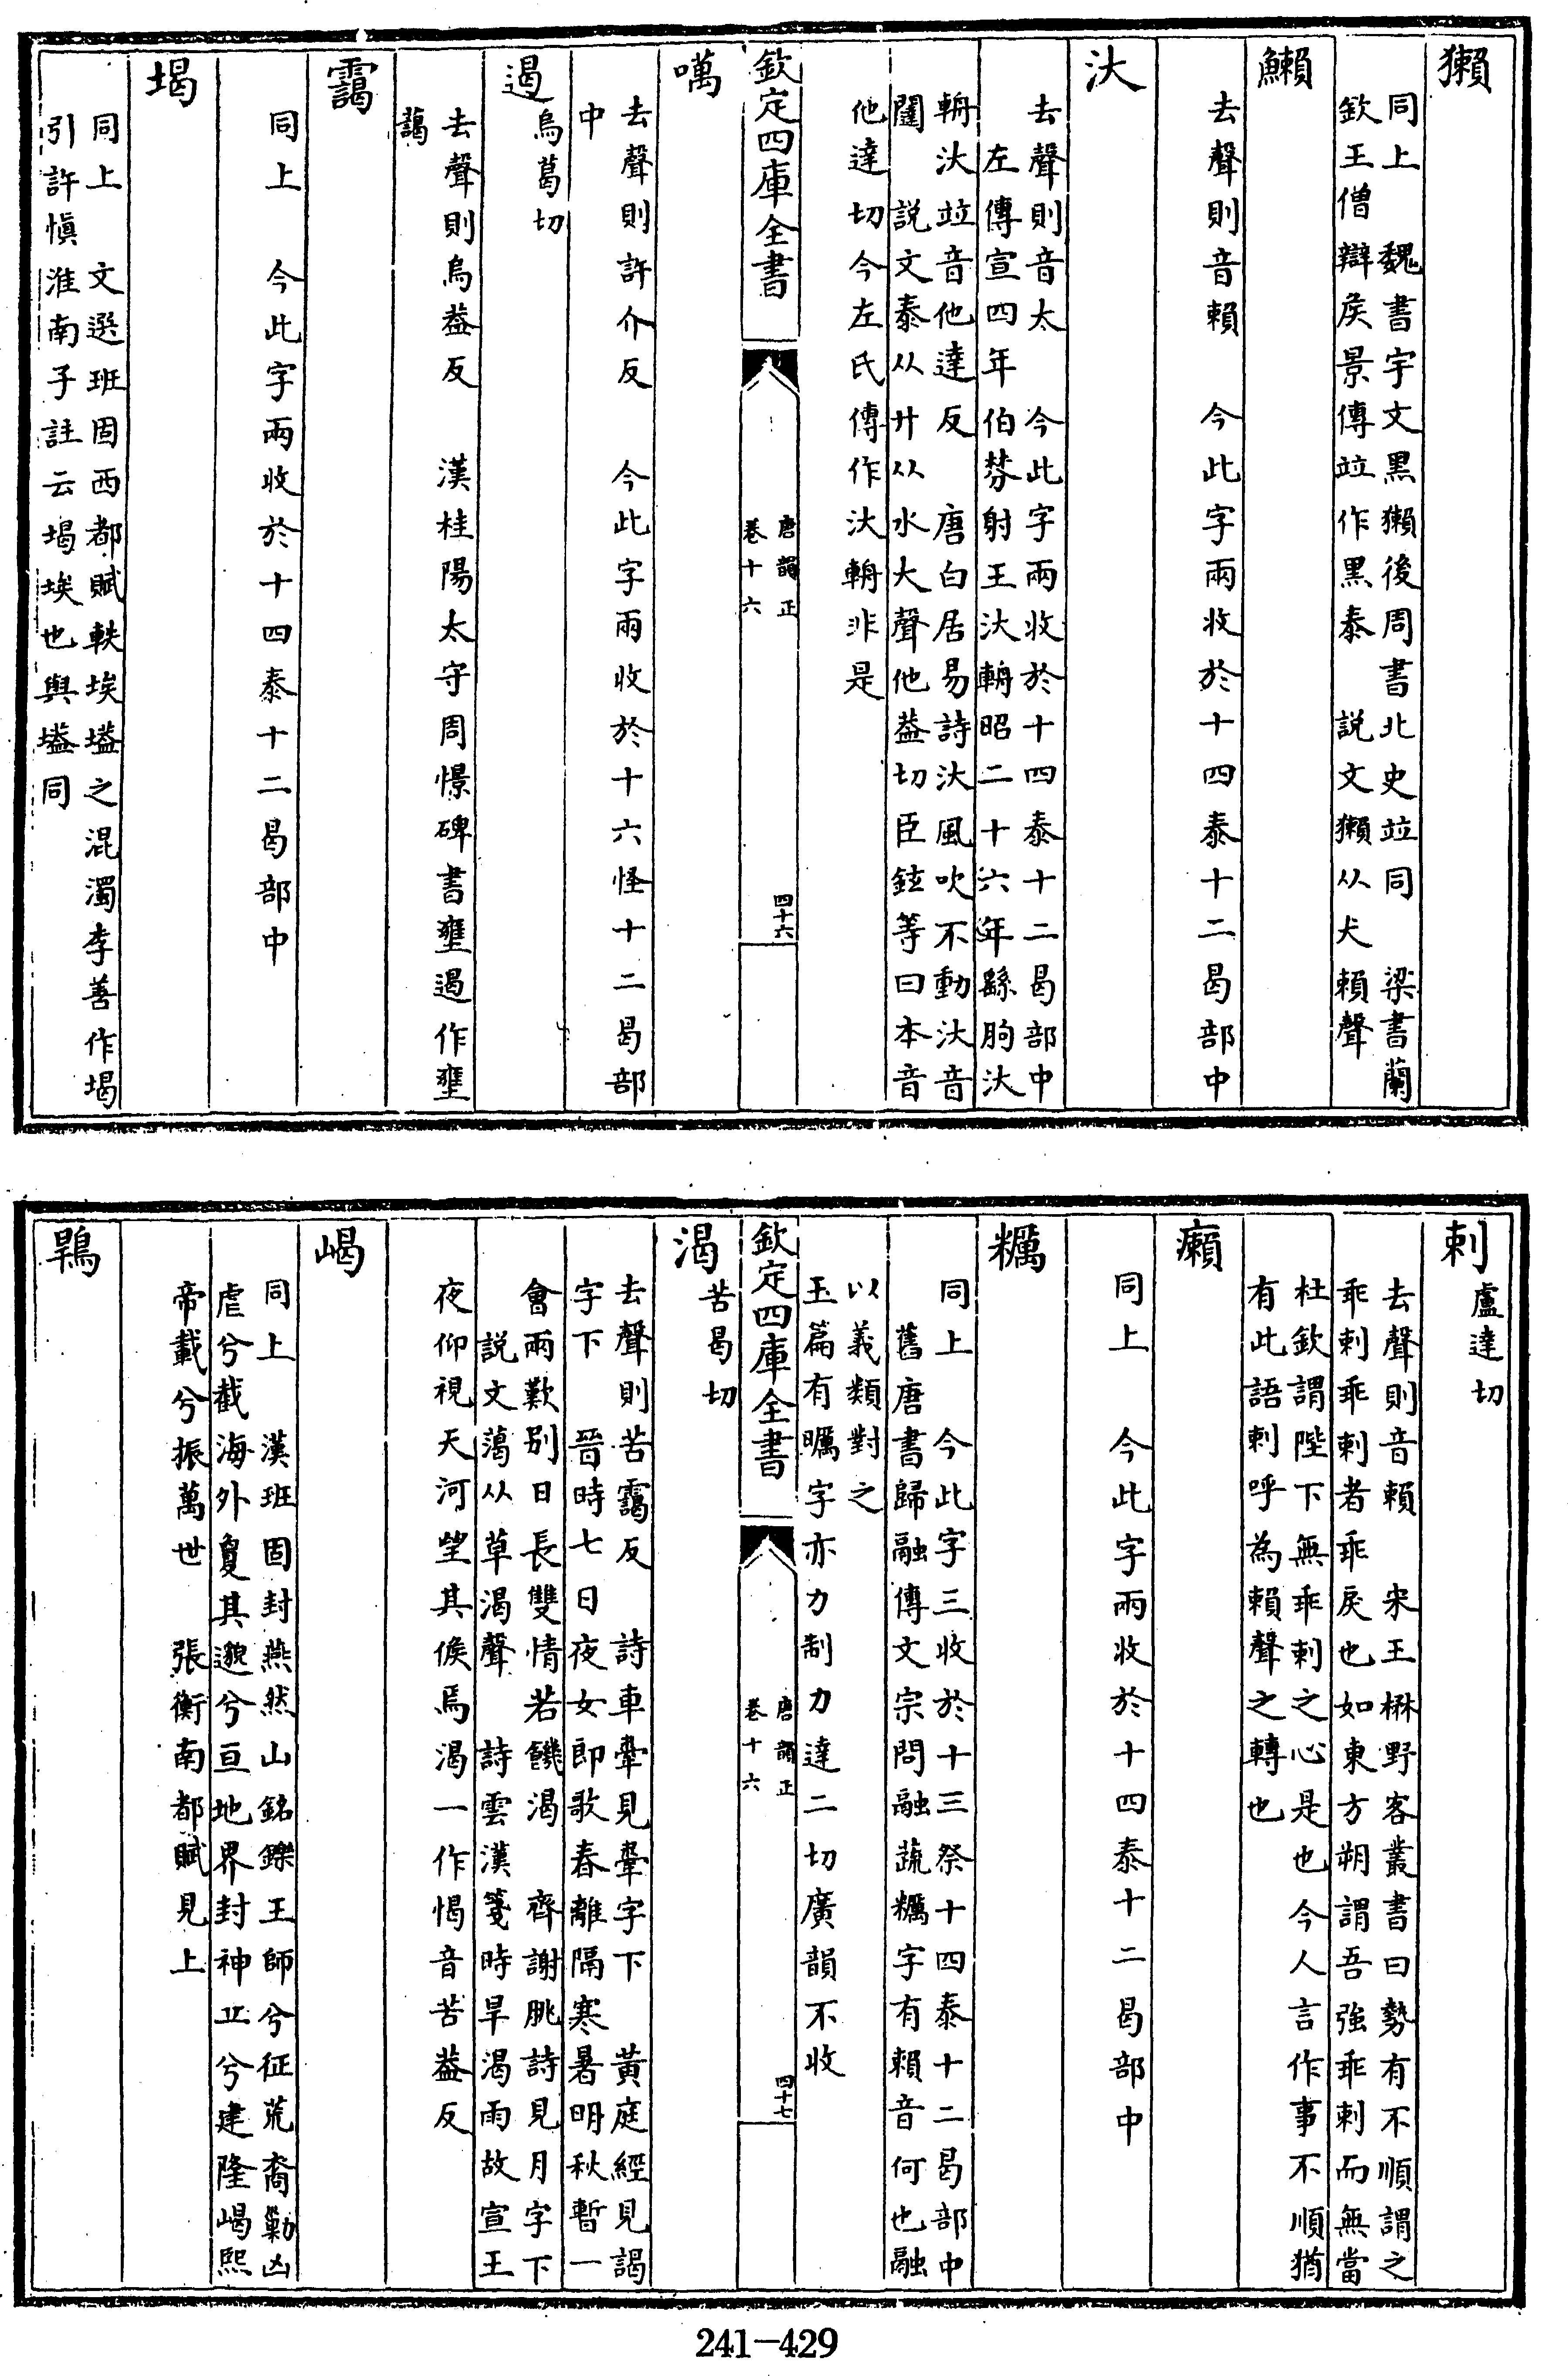 獺
同上　魏書宇文黑獺後周書北史竝同　梁書蘭
欽王僧辯侯景傳竝作黑泰　説文獺从犬賴聲
鱜
去聲則音賴　今此字兩收於十四泰十二曷部中
汏
去聲則音太　今此字兩收於十四泰十二曷部中
左傳宣四年伯棼射王汏輈昭二十六年繇朐汏
輈汏竝音他達反　唐白居易詩汏風吹不動汏音
闥　説文泰从廾从水大聲他蓋切臣鉉等曰本音
他達切今左氏傳作汏輈非是
欽定四庫全書
唐韻正
卷十六
四十六
噧
去聲則許介反　今此字兩收於十六怪十二曷部
中
遏烏葛切
去聲則烏蓋反　漢桂陽太守周憬碑書壅遏作壅
藹
靄
同上　今此字兩收於十四泰十二曷部中
堨
同上　文選班固西都賦軼埃壒之混濁李善作堨
引許愼淮南子註云堨埃也與壒同
剌盧達切
去聲則音賴　宋王楙野客叢書曰勢有不順謂之
乖剌乖剌者乖戾也如東方朔謂吾強乖剌而無當
杜欽謂陛下無乖剌之心是也今人言作事不順猶
有此語剌呼為賴聲之轉也
癩
同上　今此字兩收於十四泰十二曷部中
糲
同上　今此字三收於十三祭十四泰十二曷部中
舊唐書歸融傳文宗問融蔬糲字有賴音何也融
以義類對之
玉篇有曞字亦力制力達二切廣韻不收
欽定四庫全書
唐韻正
卷十六
四十七
渴苦曷切
去聲則苦靄反　詩車舝見舝字下　黃庭經見謁
字下　晉時七日夜女郎歌春離隔寒暑明秋暫一
會兩歎别日長雙情若饑渴　齊謝朓詩見月字下
説文藒从草渴聲　詩雲漢箋時旱渴雨故宣王
夜仰視天河望其候焉渴一作愒音苦蓋反
嵑
同上　漢班固封燕然山銘鑠王師兮征荒裔勦凶
虐兮截海外敻其邈兮亘地界封神丘兮建隆嵑熙
帝載兮振萬世　張衡南都賦見上
鶡
241-429